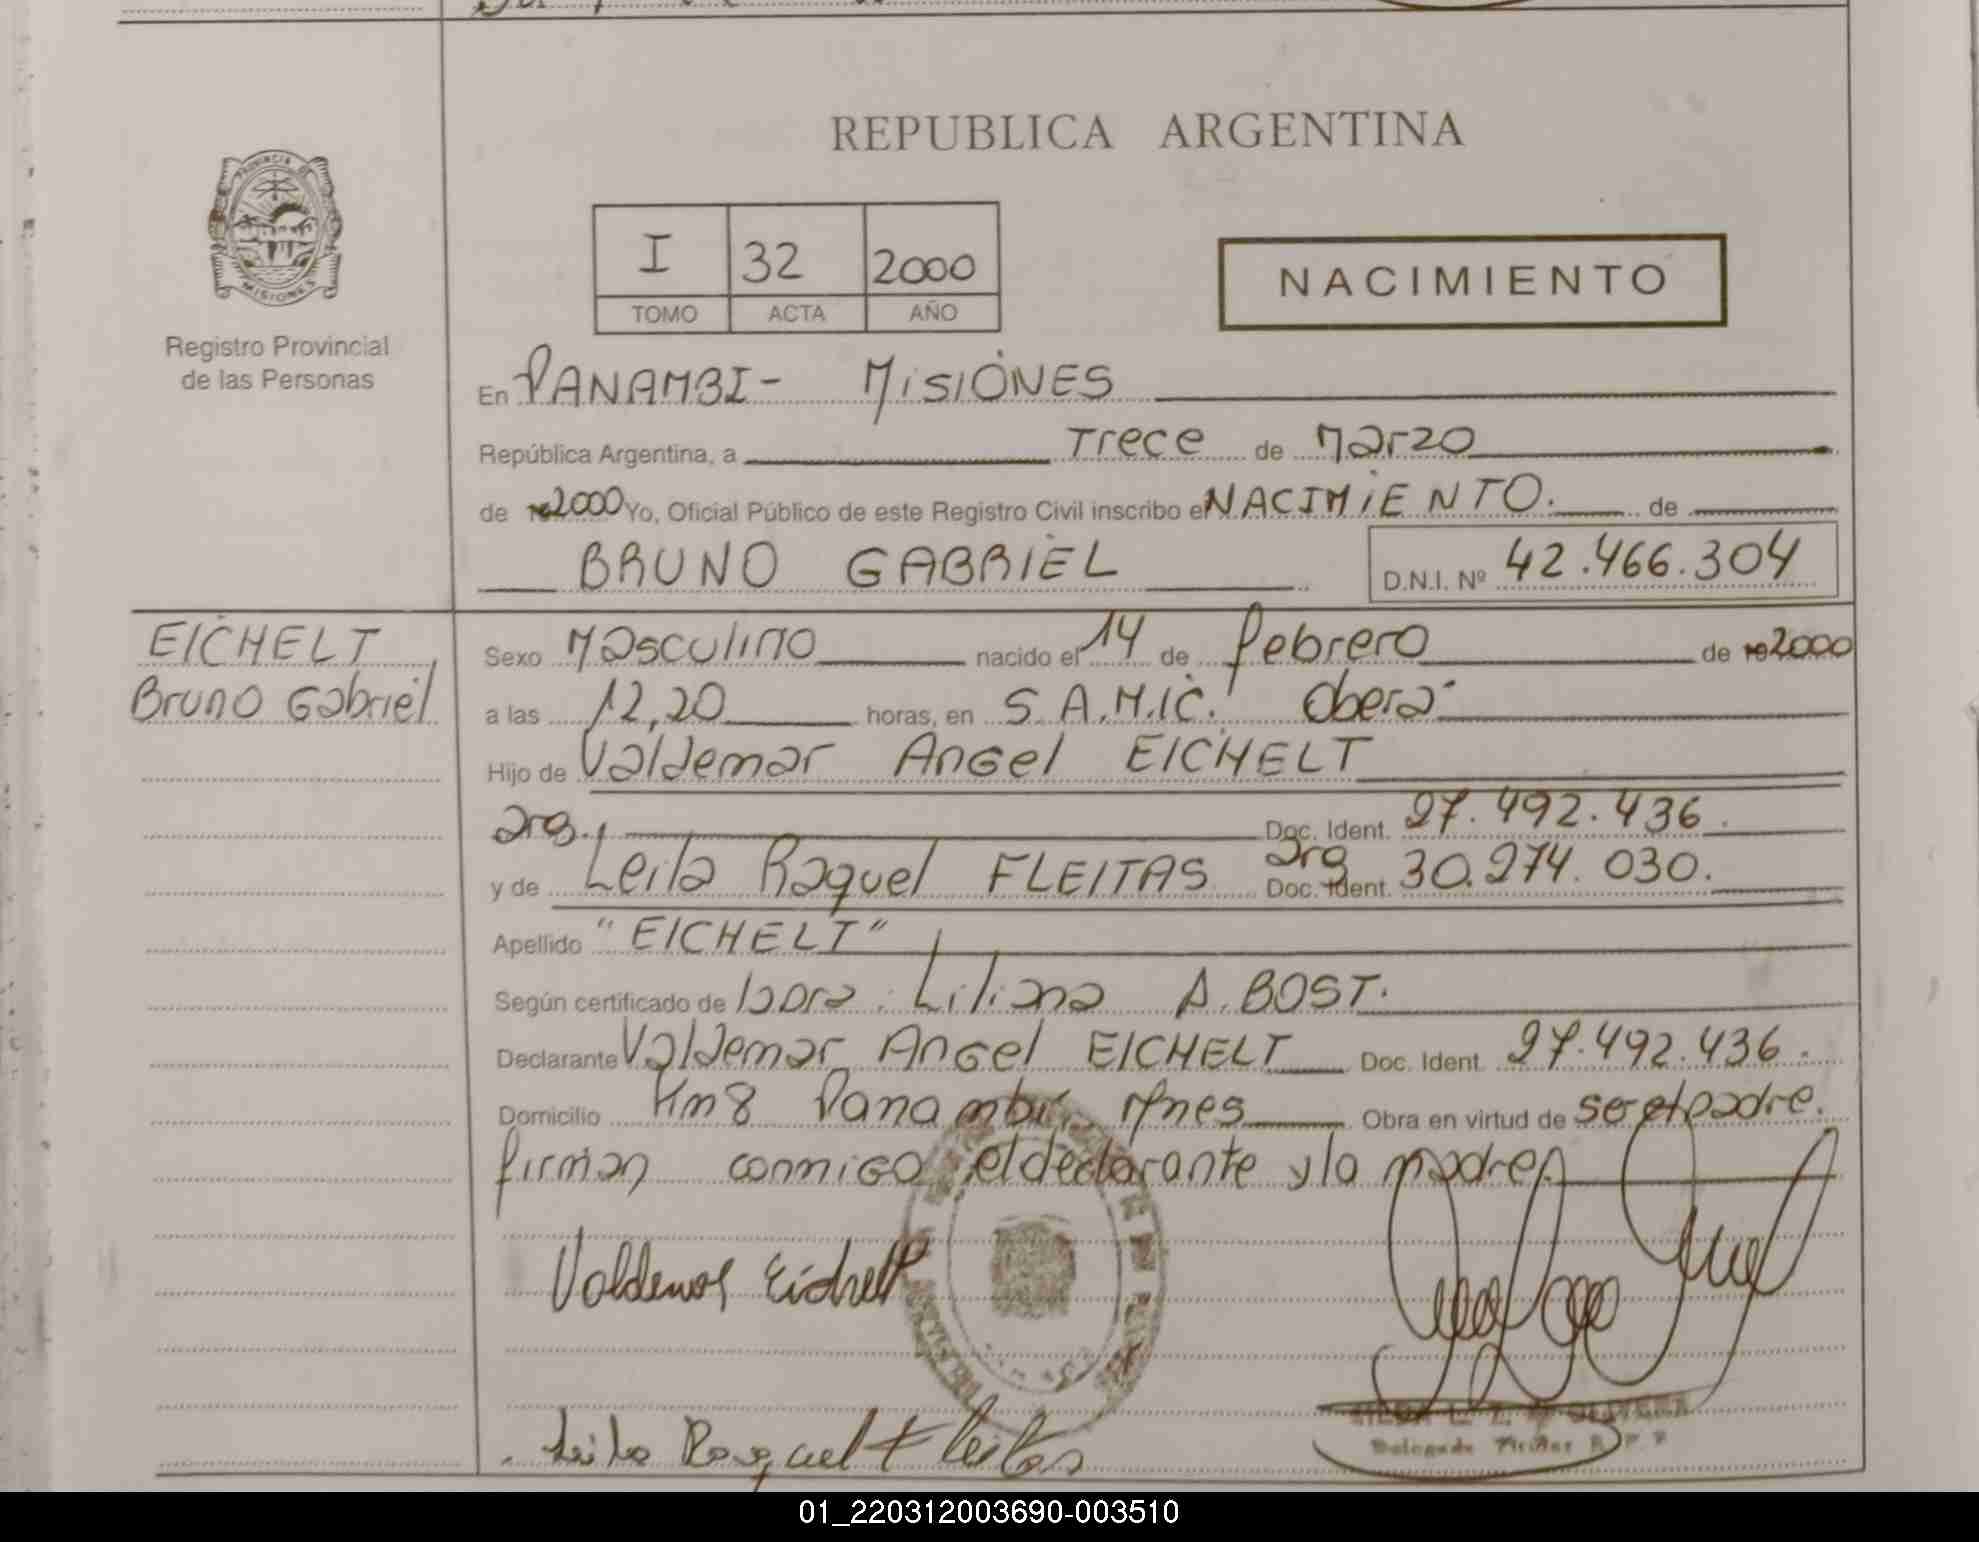 REPUBLICA ARGENTINA
PROVINCIA DE
MISIONES
Registro Provincial
de las Personas
I 32 2000
TOMO ACTA AÑO
NACIMIENTO
En PANAMBI - MisiONES
República Argentina, a Trece de Marzo
de 19 2000 Yo, Oficial Público de este Registro Civil inscribo el NACIMiENTO. de
BRUNO GABRIEL D.N.I. Nº 42.466.304
EICHELT
Bruno Gabriel
Sexo Masculino nacido el 14 de febrero de 19 2000
a las 12,20 horas, en S.A.M.IC. Oberá
Hijo de Valdemar Angel EICHELT
arg. Doc. Ident. 27.492.436.
y de Leila Raquel FLEITAS arg Doc. Ident. 30.274.030.
Apellido "EICHELT"
Según certificado de la Dra. Liliana A. BOST.
Declarante Valdemar Angel EICHELT Doc. Ident. 27.492.436.
Domicilio Km8 Panambí, Mnes Obra en virtud de ser el padre.
firman conmigo el declarante y la madre
Valdemar Eichelt
Leila Raquel Fleitas
01_220312003690-003510